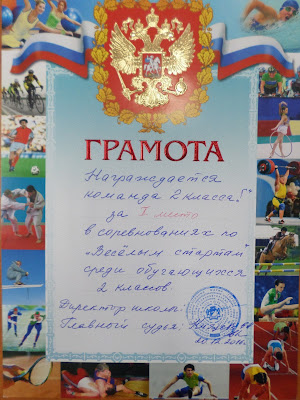 ГРАМОТА
Награждается
команда 2 класса „Г“
за I место
в соревнованиях по
„Весёлым стартам“
среди обучающихся
2 классов
Директор школы:
Главный судья: